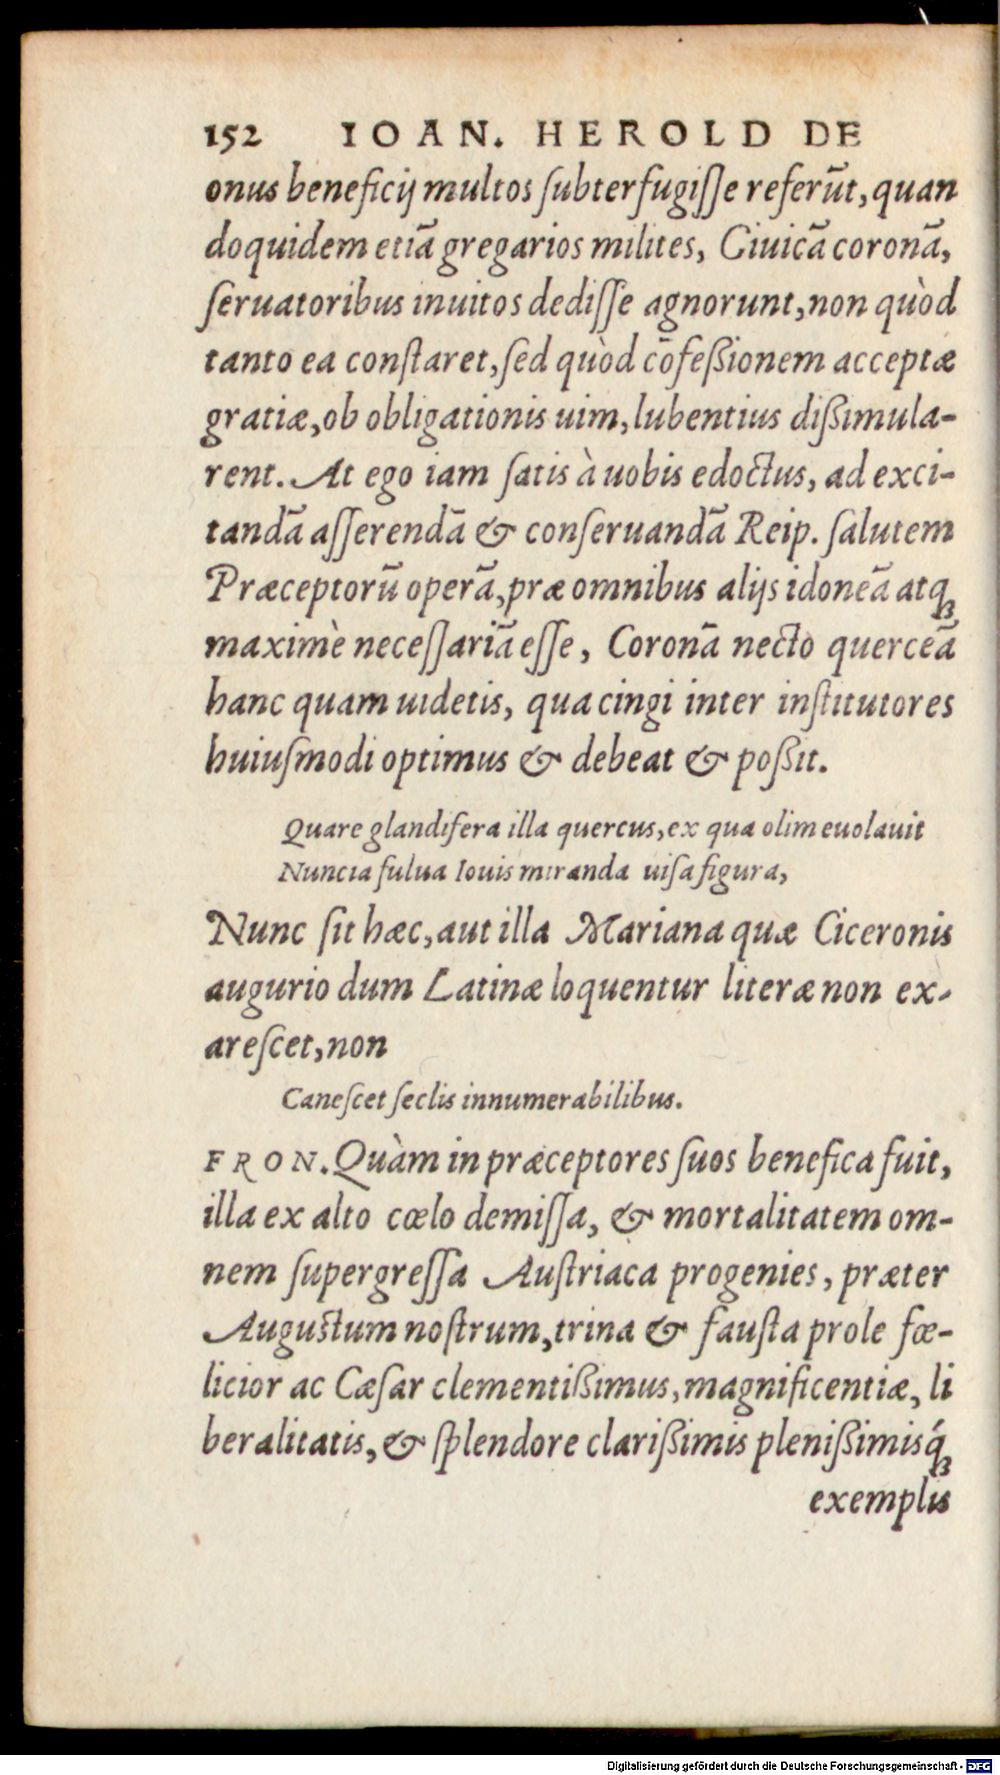 152 IOAN. HEROLD DE
onus beneficij multos ſubterfugiſſe referūt, quan
doquidem etiā gregarios milites, Ciuicā coronā,
ſeruatoribus inuitos dediſſe agnorunt, non quòd
tanto ea conſtaret, ſed quòd cōfeßionem acceptæ
gratiæ, ob obligationis uim, lubentius dißimula-
rent. At ego iam ſatis à uobis edoctus, ad exci-
tandā aſſerendā & conſeruandā Reip. ſalutem
Præceptorū operā, præ omnibus alijs idoneā atqꝫ
maximè neceſſariā eſſe, Coronā necto querceā
hanc quam uidetis, qua cingi inter inſtitutores
huiuſmodi optimus & debeat & poßit.
Quare glandifera illa quercus, ex qua olim euolauit
Nuncia fulua Iouis miranda uiſa figura,
Nunc ſit hæc, aut illa Mariana quæ Ciceronis
augurio dum Latinæ loquentur literæ non ex-
areſcet, non
Caneſcet ſeclis innumerabilibus.
FRON. Quàm in præceptores ſuos benefica fuit,
illa ex alto cœlo demiſſa, & mortalitatem om-
nem ſupergreſſa Auſtriaca progenies, præter
Auguſtum noſtrum, trina & fauſta prole fœ-
licior ac Cæſar clementißimus, magnificentiæ, li
beralitatis, & ſplendore clarißimis plenißimisq́ꝫ
exemplis
Digitalisierung gefördert durch die Deutsche Forschungsgemeinschaft - DFG